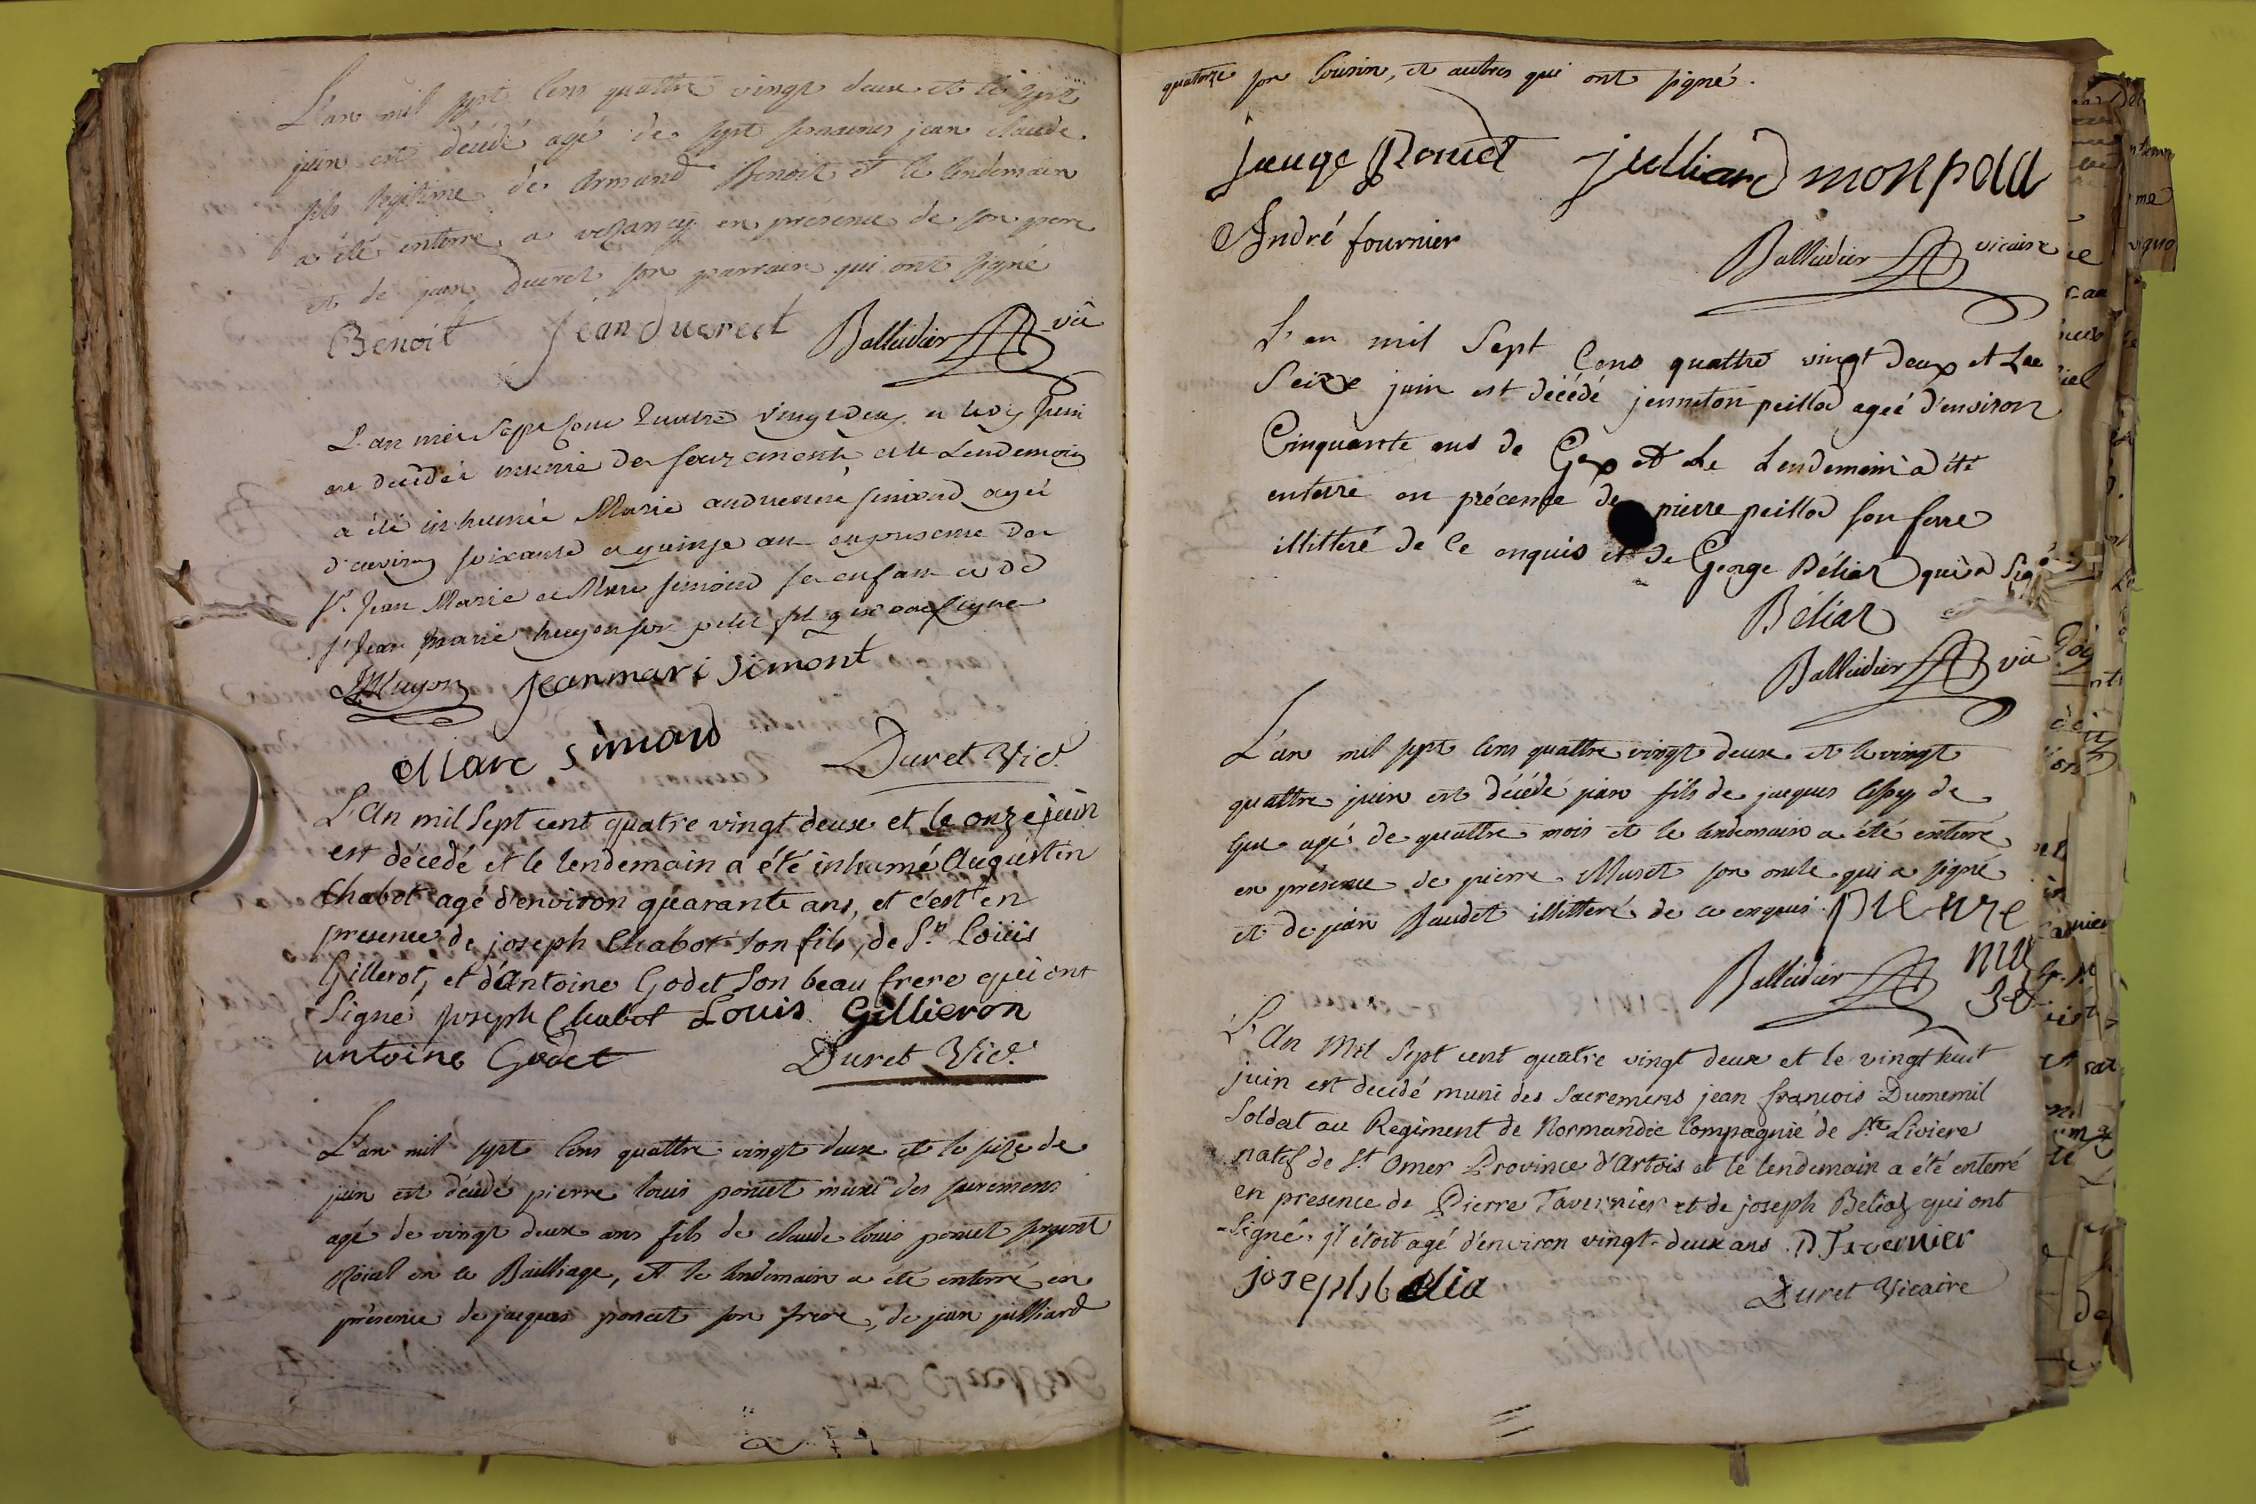 L'an mil sept cens quattre vingt deux et le sept
juin est décédé agé de sept semaines jean claude
fils légitime de Armand Benoit et le lendemain
a été enterré a vesancy en présence de son pere
et de jean ducret son parrain qui ont signé
Benoit Jean ducrect Balleidier vic
L'an mil Sept Cent Quatre vingt deux et le dix Juin
est décédée munie des sacrements et le Lendemain
a été inhumée Marie andrienne simond agée
d'environ soixante et quinze ans en presence de
Sr. Jean Marie et Marc simond ses enfans et de
Sr Jean Marie huyon son petit fils qui ont signé
JMHuyon jeanmari simont
Marc Simond Duret Vic.
L'An mil Sept cent quatre vingt deux et le onze juin
est décedé et le lendemain a été inhumé Augustin
Chabot agé d'environ quarante ans, et c'est en
presence de joseph Chabot son fils, de Sr. Loüis
Gillerot, et d'Antoine Godet Son beau frere qui ont
Signé joseph Chabot Louis Gillieron
antoine Godet Duret Vic.
L'an mil sept cens quattre vingt deux et le seize de
juin est décédé pierre louis poncet muni des sacremens
agé de vingt deux ans fils de claude louis poncet sergent
Roïal en ce Bailliage, et le lendemain a été enterré en
présence de jacques poncet son frere, de jean julliard
quatorze son Cousin, et autres qui ont signé.
julliard monpela
André fournier Balleidier vicaire
L'an mil Sept Cens quattre vingt deux et Le
Seize juin est décédé jenneton peillod ageé d'environ
Cinquante ans de Gex et Le Lendemain a été
enterré en précence de pierre peillod son frere
illitteré de Ce enquis et de George Béliaz qui a signé
Béliaz
Balleidier vic
L'an mil sept cens quattre vingt deux et le vingt
quattre juin est décédé jean fils de jacques de
Gex agé de quattre mois et le lendemain a été enterré
en présence de pierre Muset son oncle qui a signé
et de jean Baudet illitteré de ce enquis. pierre
Balleidier mu
zet
L'An Mil Sept cent quatre vingt deux et le vingt huit
juin est decédé muni des Sacremens jean françois Dumemil
Soldat au Regiment de Normandie Compagnie de Ste. Liviere
natif de St. Omer Province d'Artois et le lendemain a été enterré
en presence de Pierre Tavernier et de joseph Beliaz qui ont
Signé. jl étoit agé d'environ vingt-deux ans. P Tavernier
joseph belia Duret Vicaire